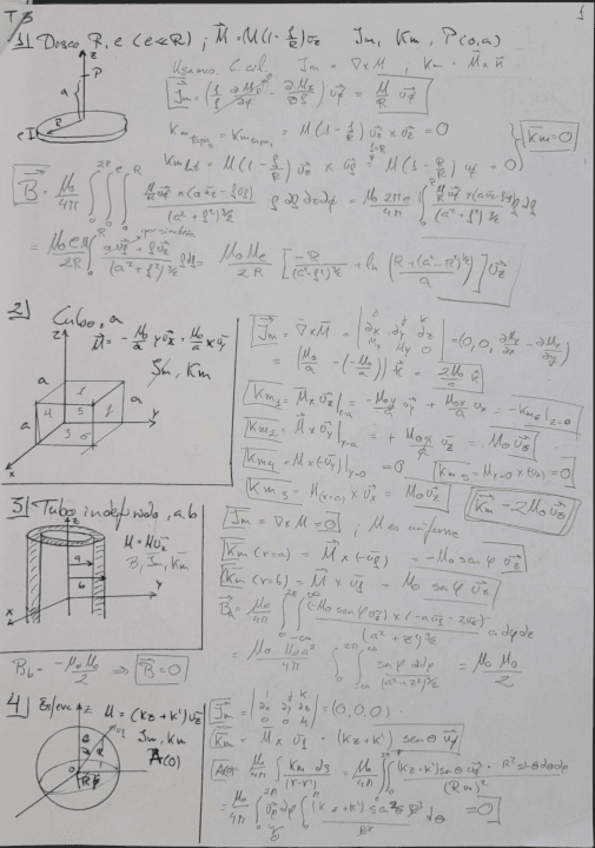 T3
1
1) Disco R, e (e<<R) ; M⃗ = M(1 - ρ/R) u⃗z Jm, Km, P(0,a)
z
P
a
R
e
Usamos C. cil. J⃗m = ∇ x M⃗ ; Km = M⃗ x n⃗
J⃗m = (1/ρ ∂Mz/∂φ - ∂Mz/∂ρ) u⃗φ = M/R u⃗φ
= M(1 - ρ/R) u⃗z x u⃗z = 0
K⃗m = 0
Km lat = M(1 - ρ/R) u⃗z x u⃗ρ = M(1 - R/R) uφ = 0
B⃗ = μ0/4π ∫0^2π ∫0^e ∫0^R M/R u⃗φ x (a u⃗z - ρ u⃗ρ) / (a² + ρ²)^3/2 ρ dρ dz dφ = μ0 2π e/4π ∫0^R M/R u⃗φ x (a u⃗z - ρ u⃗ρ) / (a² + ρ²)^3/2 ρ dρ
por simetría
= μ0 e M/2R ∫0^R a u⃗ρ + ρ u⃗z / (a² + ρ²)^3/2 ρ dρ = μ0 M e/2R [ -R/(a² + ρ²)^1/2 + ln (R + (a² - R²)^1/2 / a) ] u⃗z
2) Cubo, a
M⃗ = - M0/a y u⃗x + M0/a x u⃗y
Jm, Km
z
a
a
a
y
x
4
5
1
3
6
J⃗m = ∇ x M⃗ = | i j k ; ∂x ∂y ∂z ; Mx My 0 | = (0, 0, ∂My/∂x - ∂Mx/∂y)
= (M0/a - (-M0/a)) k⃗ = 2M0/a k⃗
K⃗m1 = M⃗ x u⃗z |z=a = M0y/a u⃗y + M0x/a ux = -Km6 |z=0
K⃗m2 = M⃗ x u⃗y |y=a = + M0 a/a u⃗z = M0 u⃗z
K⃗m4 = M x (-u⃗y) |y=0 = 0 K⃗m5 = Mx=0 x (-ux) = 0
K⃗m3 = M(x=a) x u⃗x = M0 u⃗z
K⃗m = 2M0 u⃗z
3) Tubo indefinido, a, b
M = M u⃗x
B, J⃗m, K⃗m
z
a
b
x
y
J⃗m = ∇ x M = 0 ; M es uniforme
K⃗m (r=a) = M⃗ x (-u⃗ρ) = -M0 sen φ u⃗z
K⃗m (r=b) = M⃗ x u⃗ρ = M0 sen φ u⃗z
B⃗a = μ0/4π ∫0^2π ∫-∞^∞ (-M0 sen φ u⃗z) x (-a u⃗ρ - z u⃗z) / (a² + z²)^3/2 a dφ dz
= μ0 M0 a²/4π ∫0^2π ∫-∞^∞ sen φ dφ / (a² + z²)^3/2 = μ0 M0/2
Bb = -μ0 M0/2 ⇒ B⃗ = 0
4) Esfera M = (kz + k') u⃗z
Jm, Km
A(0)
z
0
R
J⃗m = | i j k ; ∂x ∂y ∂z ; 0 0 M | = (0,0,0)
K⃗m = M⃗ x u⃗ρ = (kz + k') sen θ u⃗φ
A(0) = μ0/4π ∫ Km ds/(r-r') = μ0/4π ∬ (kz + k') sen θ u⃗φ · R² sen θ dθ dφ
= μ0/4π ∫0^2π u⃗φ dφ ∫0^π (kz + k') sen² θ R² / R² dθ = 0